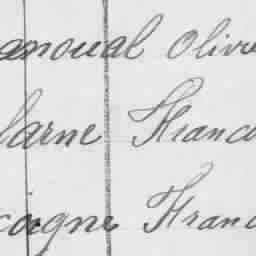 anoual Olive
larne Franc
cogne Franc